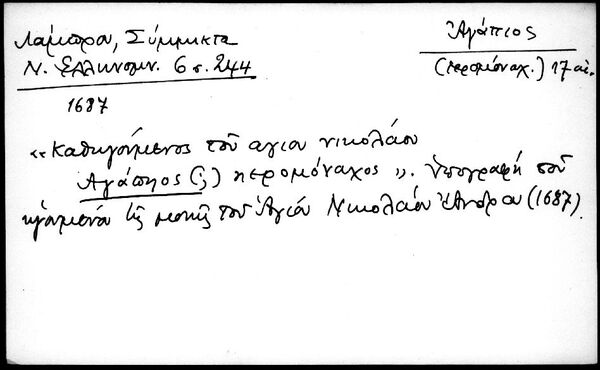 Λάμπρου, Σύμμικτα
Ν. Ἑλληνομν. 6 σ. 244
1687
Ἀγάπιος
(ἱερομόναχ.) 17 αἰ.
«καθηγούμενος τοῦ αγιου νικολάου
Αγάπηος (;) ηερομόναχος». Ὑπογραφή τοῦ
ηγουμένου τῆς μονῆς τοῦ Ἁγίου Νικολάου Ἄνδρου (1687).